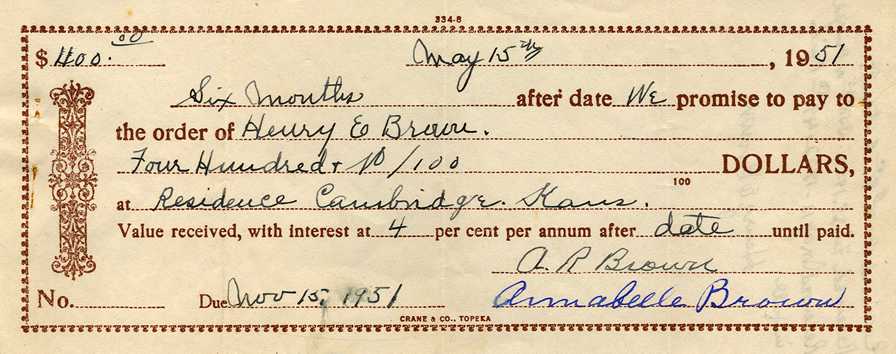 334-8
$ 400.00 May 15th, 1951
Six Months after date We promise to pay to
the order of Henry E Brown.
Four Hundred & no/100 DOLLARS,
100
at Residence Cambridge. Kans.
Value received, with interest at 4 per cent per annum after date until paid.
A. R Brown
No. Due Nov 15, 1951 Annabelle Brown
CRANE & CO., TOPEKA